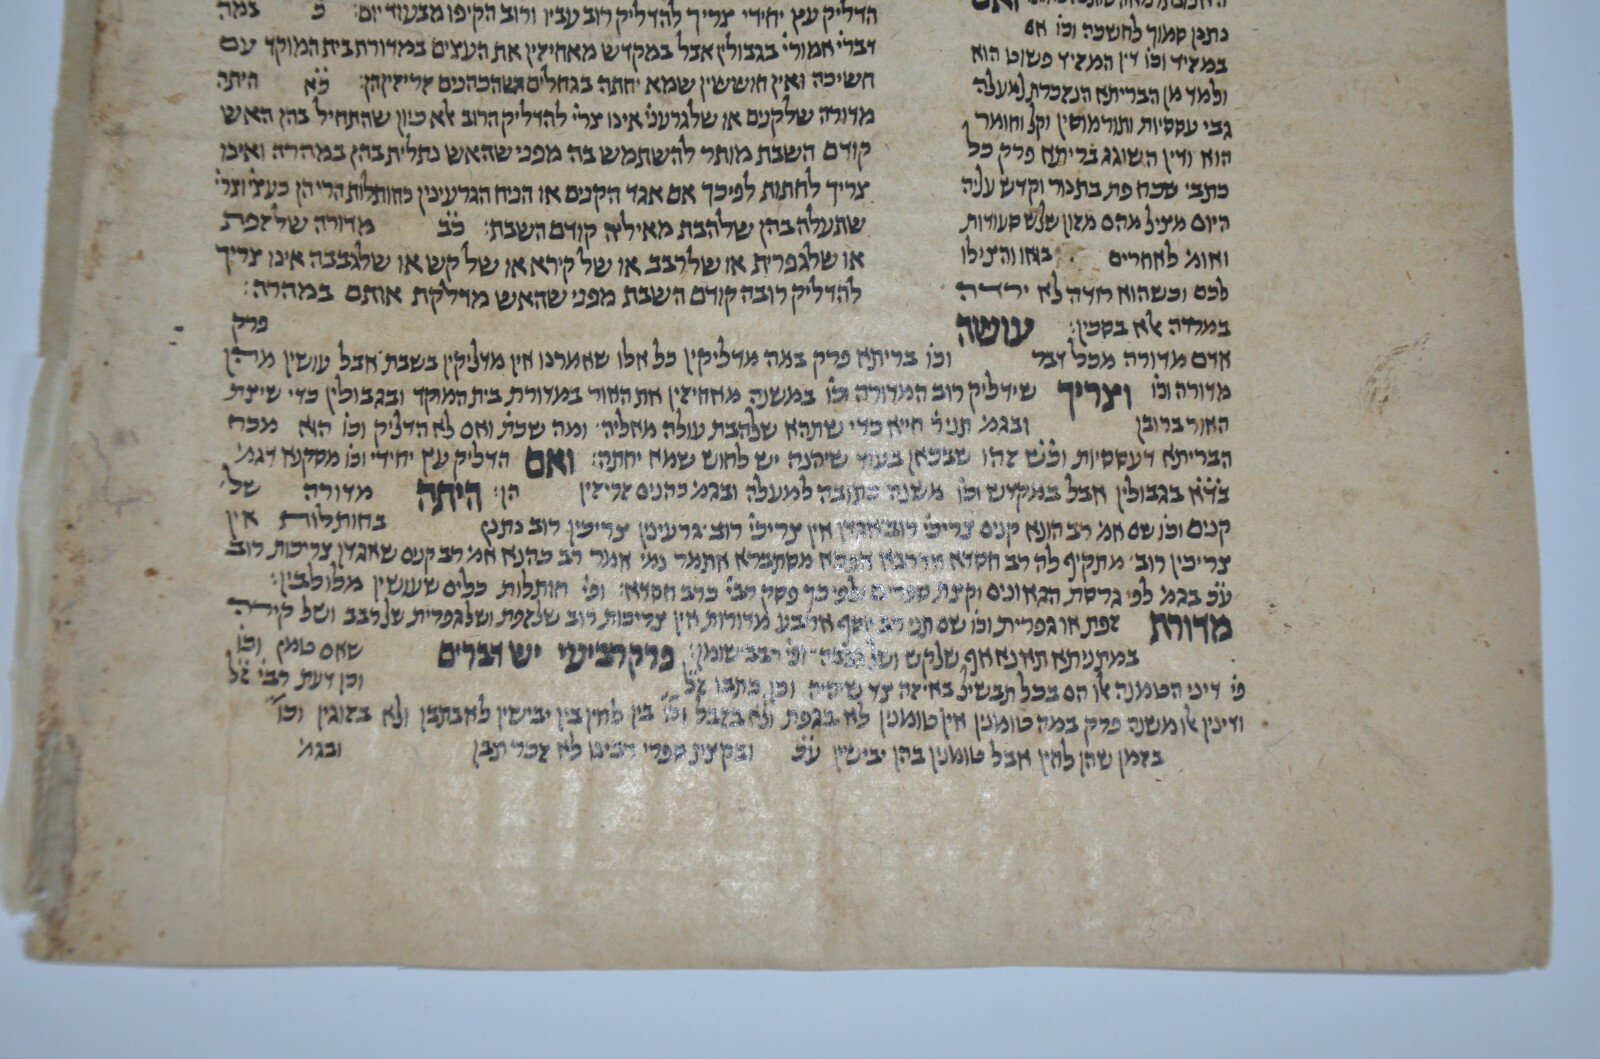 הדליק עץ יחידי צריך להדליק רוב עביו ורוב הקיפו מבעוד יום: כ במה
דברי אמורי בגבולין אבל במקדש מאחיזין את העצים במדורת בית המוקד עם
חשיכה ואין חוששין שמא יחתה בגחלים שהכהנים זריזין הן: כא היתה
מדורה שלקנים או שלגרעני אינו צרי להדליק הרוב אלא כיון שהתחיל בהן האש
קודם השבת מותר להשתמש בה מפני שהאש נתלית בהן במהרה ואינו
צריך לחתות לפיכך אם אגד הקנים או הניח הגרעינין בחותלות הרי הן כעצי וצרי
שתעלה בהן שלהבת מאיליה קודם השבת: כב מדורה שלזפת
או שלגפרית או שלרבב או של קירא או של קש או שלגבבה אינו צריך
להדליק רובה קודם השבת מפני שהאש מדלקת אותם במהרה:
פרק
נתנן סמוך לחשכה וכו אם
במזיד וכו דין המזיד פשוט הוא
ולמד מן הבריתא הנזכרת למעלה
גבי עססיות ותורמוסין וקל וחומר
הוא ודין השוגג בריתא פרק כל
כתבי שכח פת בתנור וקדש עליה
היום מציל מהם מזון שלש סעודות
ואומ' לאחרים באו והצילו
לכם וכשהוא רודה לא ירדה
במרדה אלא בסכין: עושה
אדם מדורה מכל דבר וכו בריתא פרק במה מדליקין כל אלו שאמרנו אין מדליקין בשבת אבל עושין מהן
מדורה וכו וצריך שידליק רוב המדורה וכו במשנה מאחיזין את האור במדורת בית המוקד ובגבולין כדי שיצת
האור ברובן ובגמ' תני ר' חייא כדי שתהא שלהבת עולה מאליה ומה שכת' ואם לא הדליק וכו הוא מכח
הבריתא דעססיות שמא יחתה: ואם הדליק עץ יחידי וכו מסקנא דגמ'
בד"א בגבולין אבל במקדש וכו משנה כתובה למעלה ובגמ' כהנים זריזין הן: היתה מדורה של
קנים וכו שם אמ' רב הונא קנים צריכי רוב אגדן אין צריכי רוב גרעינין צריכין רוב נתנן בחותלות אין
צריכין רוב מתקיף לה רב חסדא אדרבא איפכא מסתברא אתמר נמי אמר רב כהנא אמ' רב קנים שאגדן צריכות רוב
ע"כ בגמ' לפי גרסת הגאונים וקצת ספרים ולפי כך פסק רבי' כרב חסדא: ופי' חותלות כלים שעושין מלולבין:
מדורת זפת או גפרית וכו שם תני רב יוסף ארבע מדורות אין צריכות רוב שלזפת ושלגפרית שלרבב ושל קירה
במתניתא תאנא אף שלקש ושלגבבה ופי' רבב שומן: פרק רביעי יש דברים שאם טמן וכו
פי' דיני הטמנה אלו הם בכל תבשיל באיזה צד שיהיה וכן כתבו ז"ל וכן דעת רבי' ז"ל
ודינין אלו משנה פרק במה טומנין אין טומנין לא בגפת ולא בזבל וכו בין לחין בין יבישין לא בתבן ולא בזוגין וכו
בזמן שהן לחין אבל טומנין בהן יבישין ע"כ ובקצת ספרי רבינו לא זכרי תבן ובגמ'